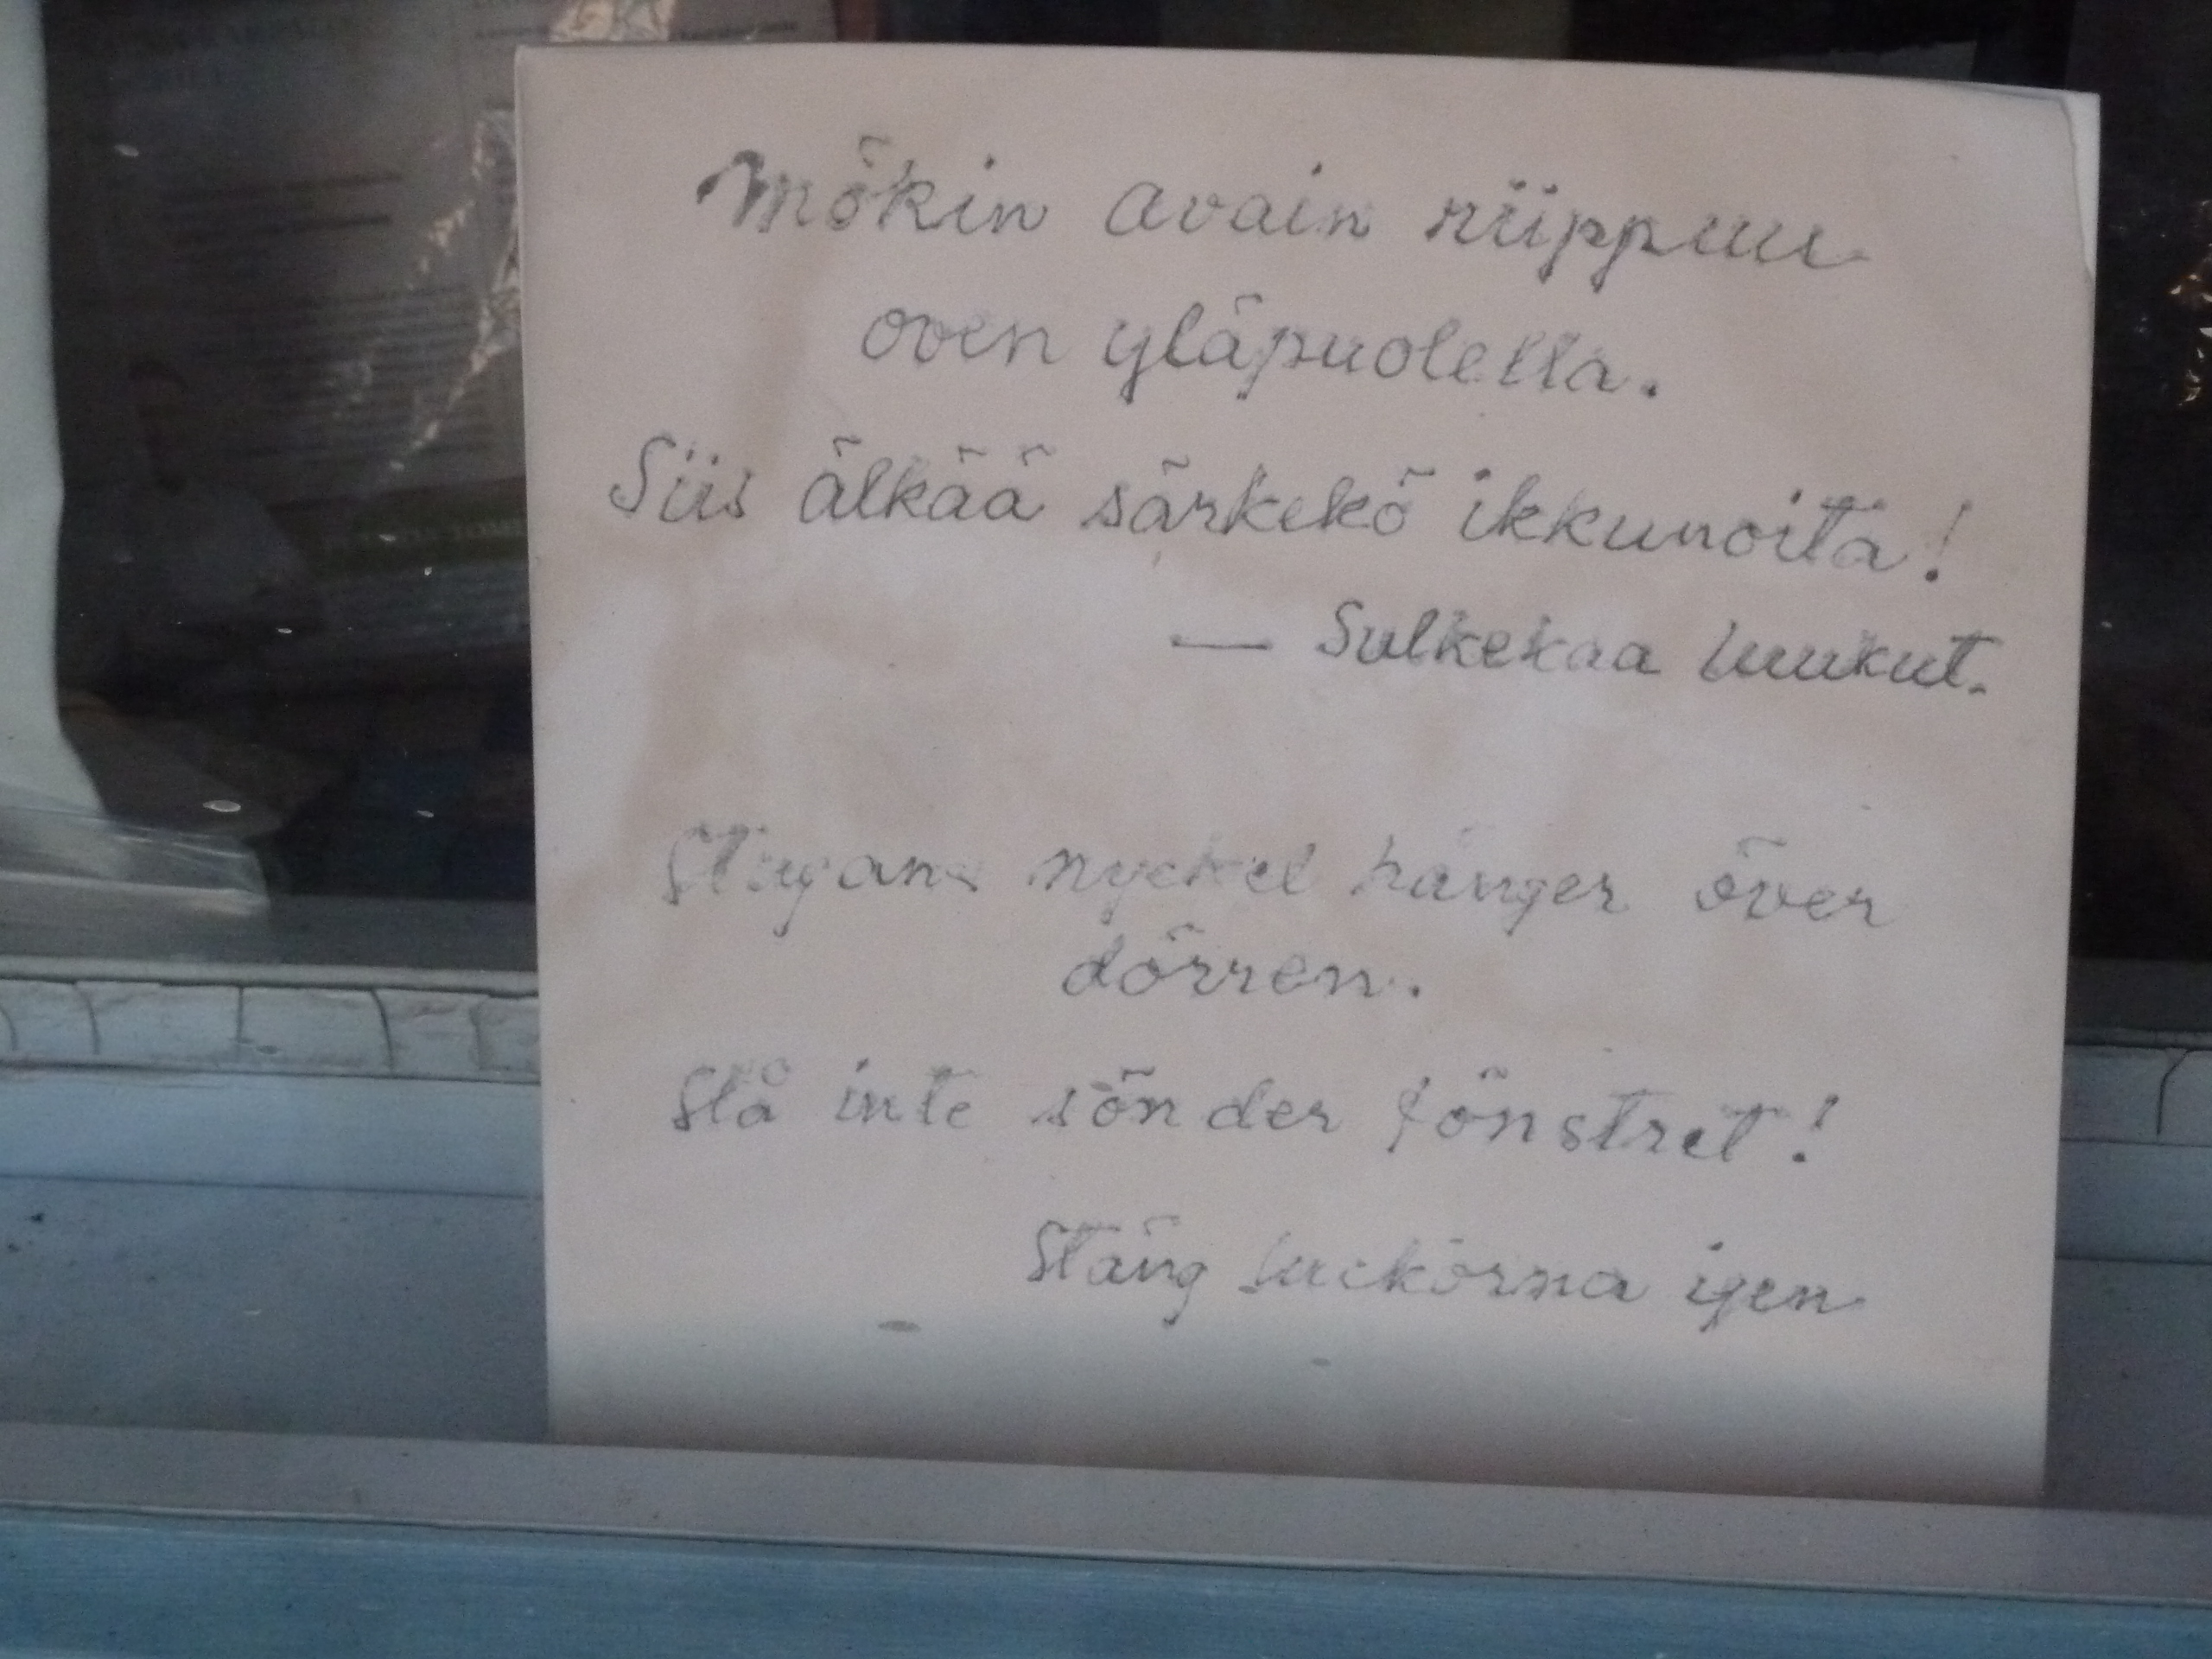 Mökin avain riippuu
oven yläpuolella.
Siis älkää särkekö ikkunoita!
— Sulkekaa luukut.
Stugans nyckel hänger över
dörren.
Slå inte sönder fönstret!
Stäng luckorna igen